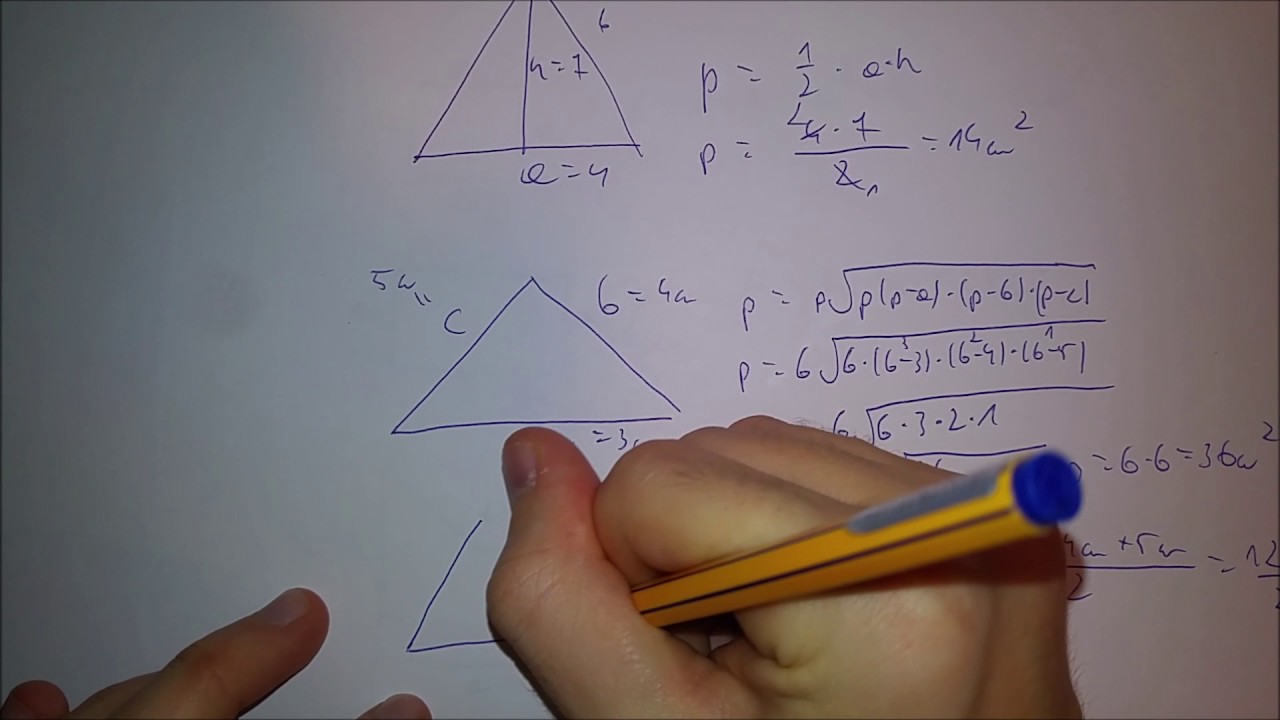 b
h=7
p = 1/2 · a·h
a=4
p = 4·7/2 = 14cm²
5cm
c
b=4cm
p = p√p(p-a)·(p-b)·(p-c)
p = 6√6·(6-3)·(6-4)·(6-5)
3 2 1
6√6·3·2·1
=3
=6·6=36cm²
4cm+5cm/2 = 12